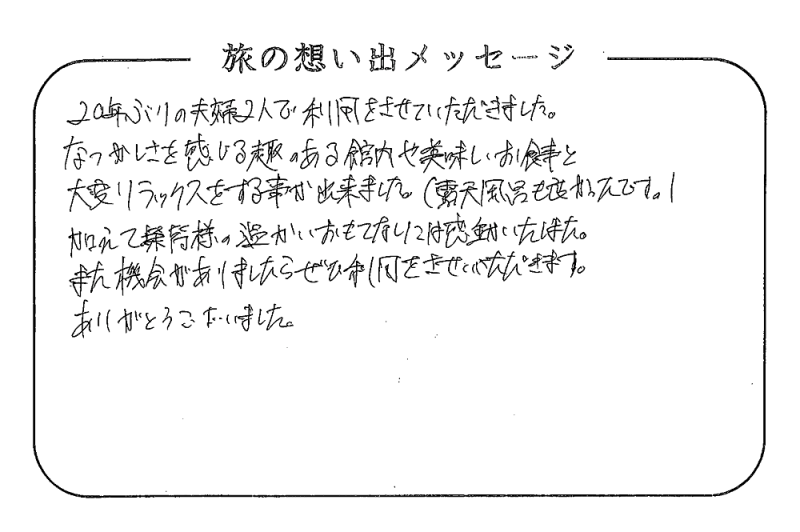 旅の想い出メッセージ
20年ぶりの夫婦2人で利用をさせていただきました。
なつかしさを感じる趣のある館内や美味しいお食事と
大変リラックスをする事が出来ました。(露天風呂も良かったです。)
加えて従業員様の温かいおもてなしには感動いたしました。
また機会がありましたらぜひ利用をさせていただきます。
ありがとうございました。